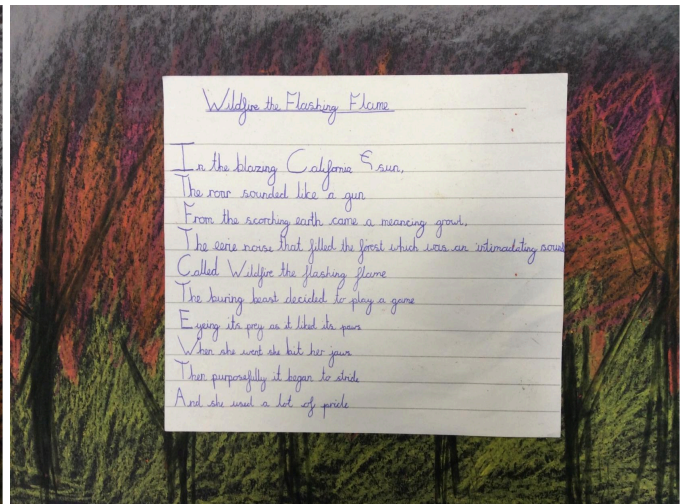 Wildfire the Flashing Flame
In the blazing California & sun,
The roar sounded like a gun
From the scorching earth came a meancing growl,
The eerie noise that filled the forest which was an intimadating sound
Called Wildfire the flashing flame
The buring beast decided to play a game
Eyeing its prey as it liked its paws
When she went she but her jaws
Then purposefully it began to stride
And she used a lot of pride